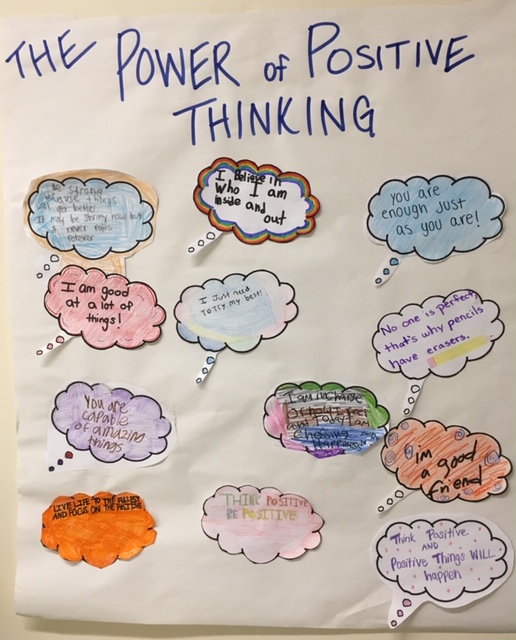 THE POWER of POSITIVE
THINKING
Be strong
because things
will get better
It may be stormy now but
it never rains
forever
I Believe in
Who I am
inside and
out
You are
enough just
as you are!
I am good
at a lot of
things!
I Just need
to try my best!
No one is perfect,
that's why pencils
have erasers.
You are
capable
of amazing
things
I am in charge
of how I feel
and Today I am
choosing
Happiness
im
a good
friend
LIVE LIFE TO THE FULLEST
AND FOCUS ON THE POSITIVE
THINK POSITIVE
BE POSITIVE
Think Positive
AND
Positive Things WILL
happen